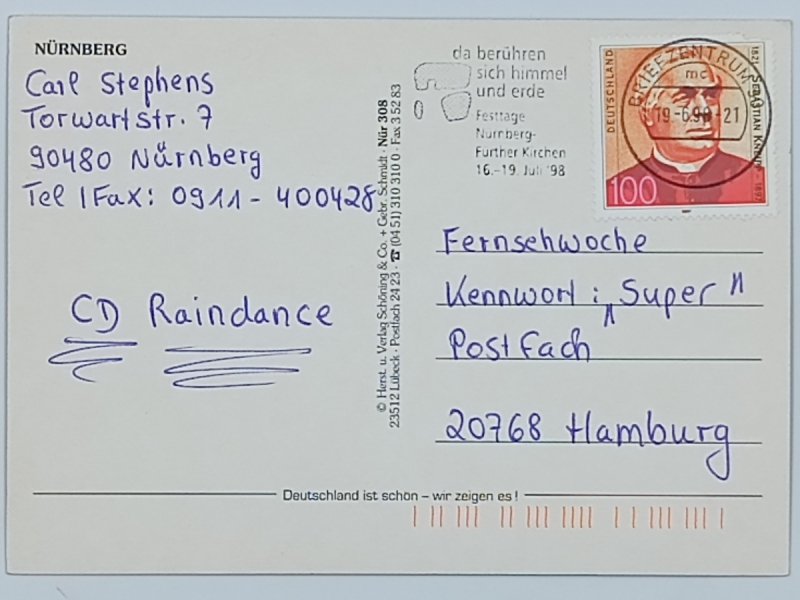 NÜRNBERG
Carl Stephens
Torwartstr. 7
90480 Nürnberg
Tel / Fax: 0911 - 400428
CD Raindance
© Herst. u. Verlag Schöning & Co. + Gebr. Schmidt · Nür 308
23512 Lübeck · Postfach 24 23 · ☎ (04 51) 310 310 0 · Fax 3 52 83
da berühren
sich himmel
und erde
Festtage
Nürnberg-
Further Kirchen
16.-19. Juli '98
DEUTSCHLAND
100
SEBASTIAN
1897
BRIEFZENTRUM
mc
19.-6.98-21
Fernsehwoche
Kennwort: "Super"
Postfach
20768 Hamburg
Deutschland ist schön – wir zeigen es!